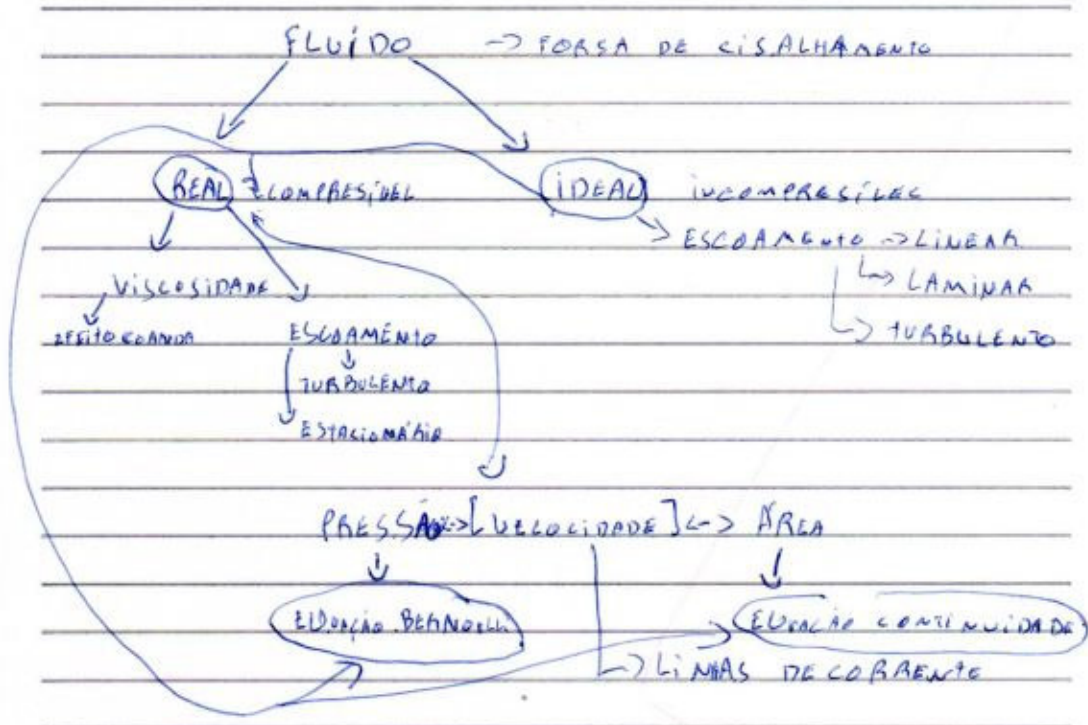 FLUÍDO -> FORSA DE CISALHAMENTO
REAL COMPRESÍVEL
IDEAL INCOMPRESÍLEL
ESCOAMENTO -> LINEAR
LAMINAR
TURBULENTO
VISCOSIDADE
EFEITO COANDA
ESCOAMENTO
TURBULENTO
ESTACIONÁRIO
PRESSÃO <-> [VELOCIDADE] <-> ÁREA
EQUAÇÃO BERNOELLI
EQUAÇÃO CONTINUIDADE
LINHAS DE CORRENTE